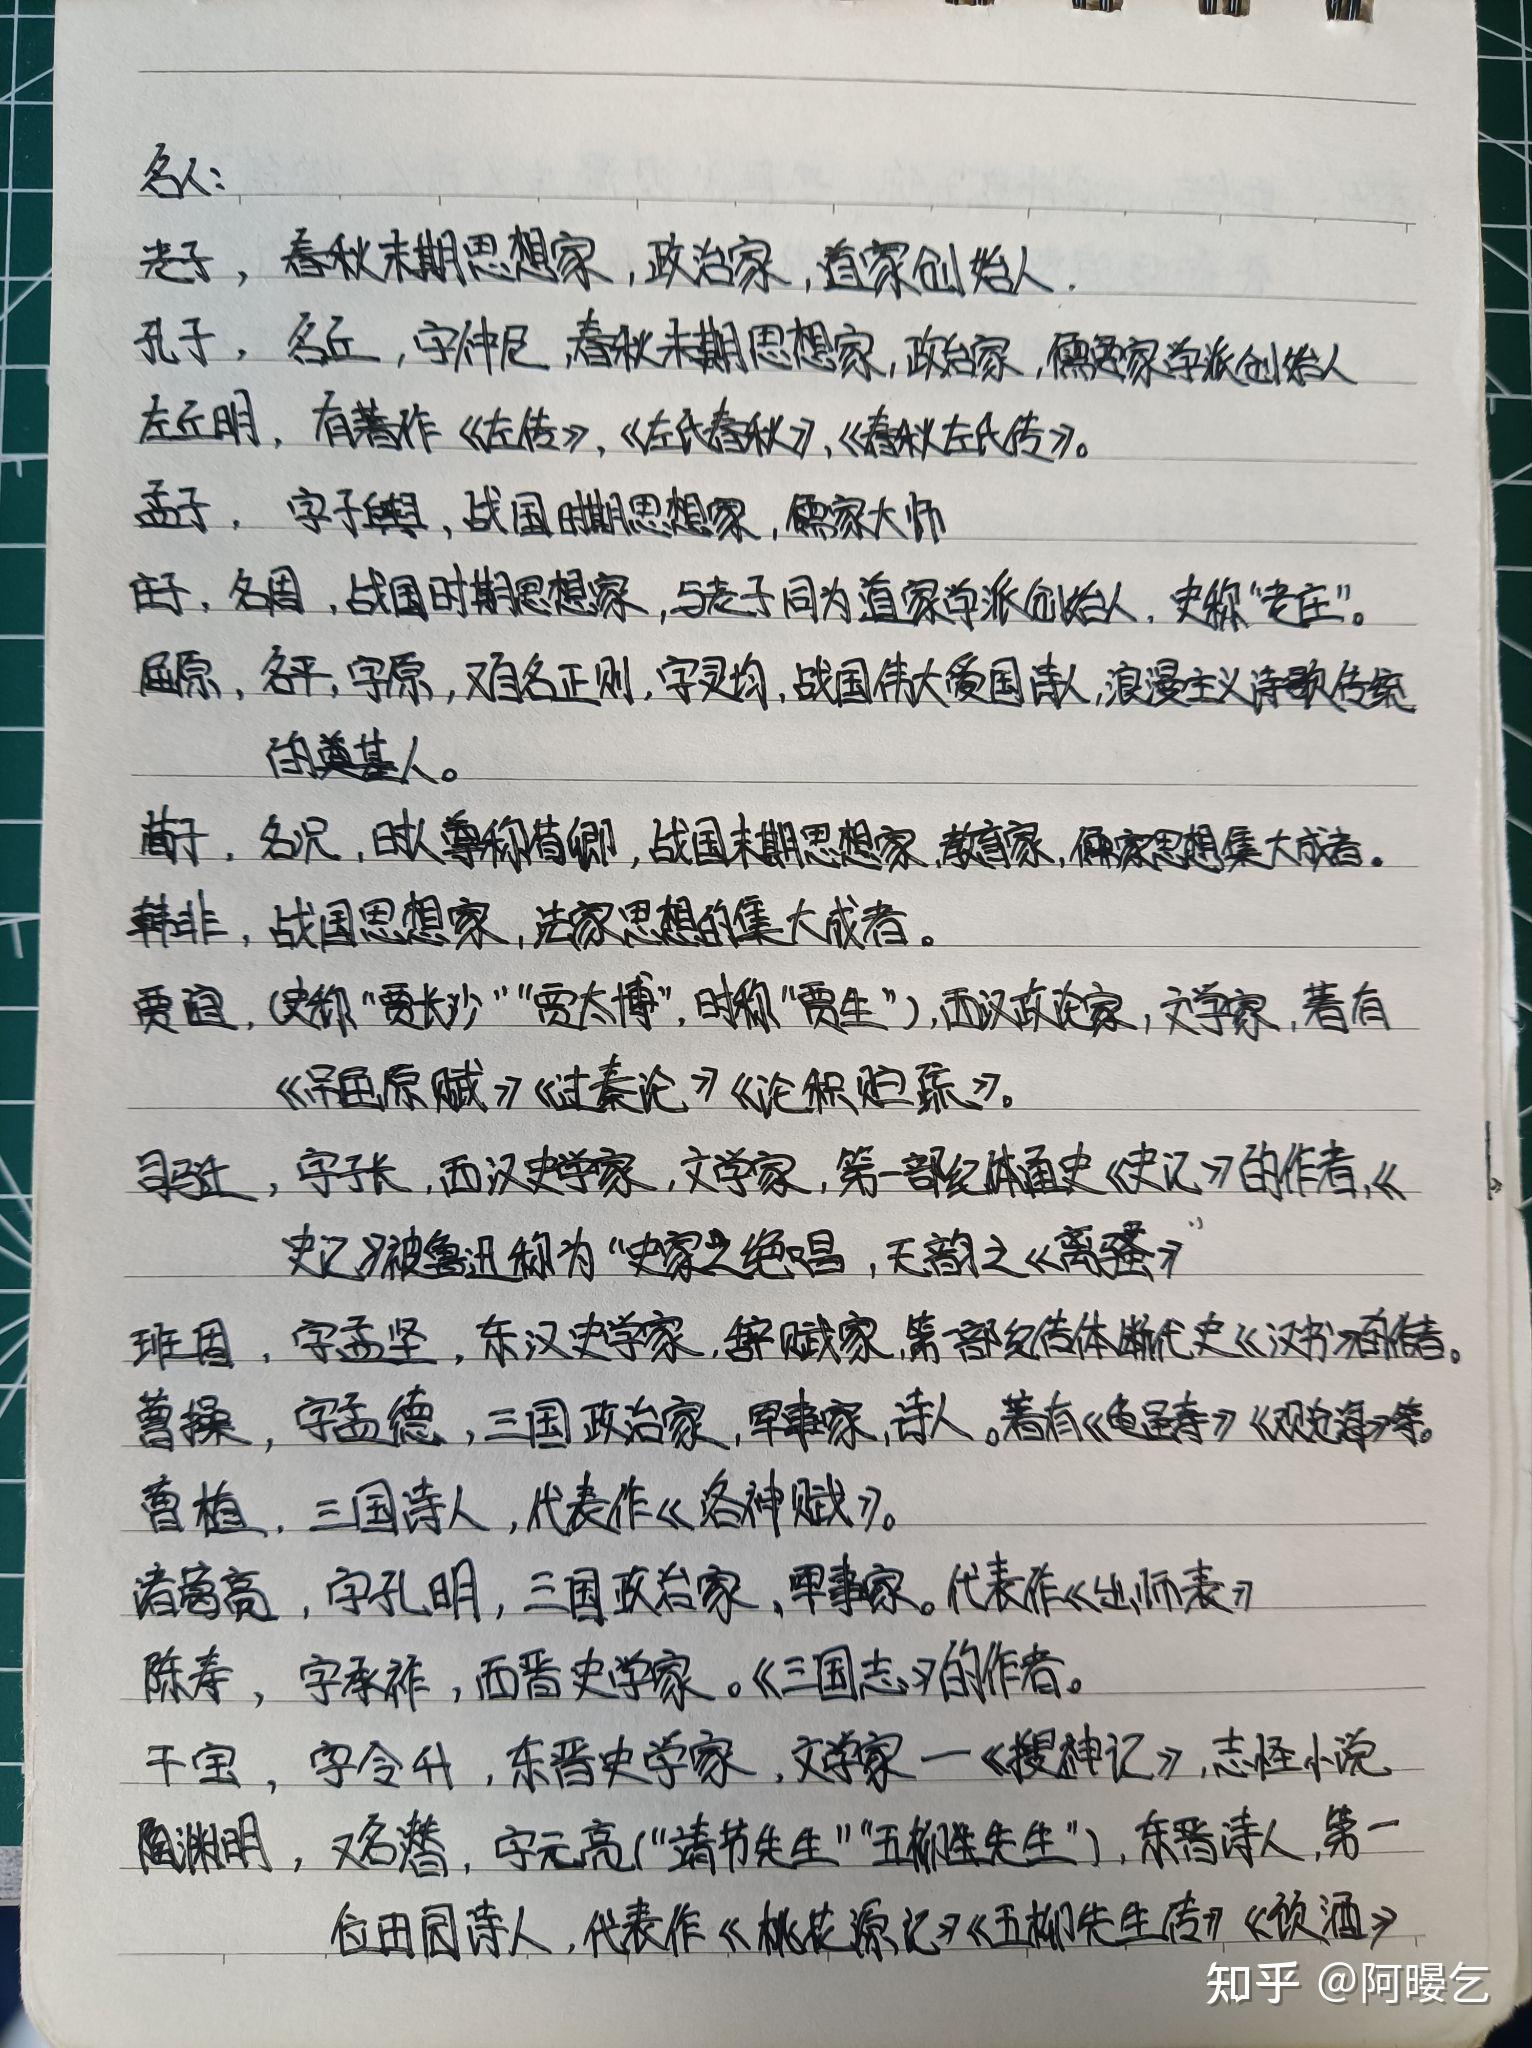 名人：
老子，春秋末期思想家，政治家，道家创始人．
孔子，名丘，字仲尼，春秋末期思想家，政治家，儒家学派创始人
左丘明，有著作《左传》，《左氏春秋》，《春秋左氏传》。
孟子，字子舆，战国时期思想家，儒家大师
庄子，名周，战国时期思想家，与老子同为道家学派创始人，史称"老庄"。
屈原，名平，字原，又自名正则，字灵均，战国伟大爱国诗人，浪漫主义诗歌传统
的奠基人。
荀子，名况，时人尊称荀卿，战国末期思想家，教育家，儒家思想集大成者。
韩非，战国思想家，法家思想的集大成者。
贾谊，(史称"贾长沙""贾太博"，时称"贾生")，西汉政论家，文学家，著有
《吊屈原赋》《过秦论》《论积贮疏》。
司马迁，字子长，西汉史学家，文学家，第一部纪体通史《史记》的作者，《
史记》被鲁迅称为"史家之绝唱，无韵之《离骚》"
班固，字孟坚，东汉史学家，辞赋家，第一部纪传体断代史《汉书》的作者。
曹操，字孟德，三国政治家，军事家，诗人。著有《龟虽寿》《观沧海》等。
曹植，三国诗人，代表作《洛神赋》。
诸葛亮，字孔明，三国政治家，军事家。代表作《出师表》
陈寿，字承祚，西晋史学家。《三国志》的作者。
干宝，字令升，东晋史学家，文学家一《搜神记》，志怪小说
陶渊明，又名潜，字元亮("靖节先生""五柳先生")，东晋诗人，第一
位田园诗人，代表作《桃花源记》《五柳先生传》《饮酒》
知乎 @阿嗳乞